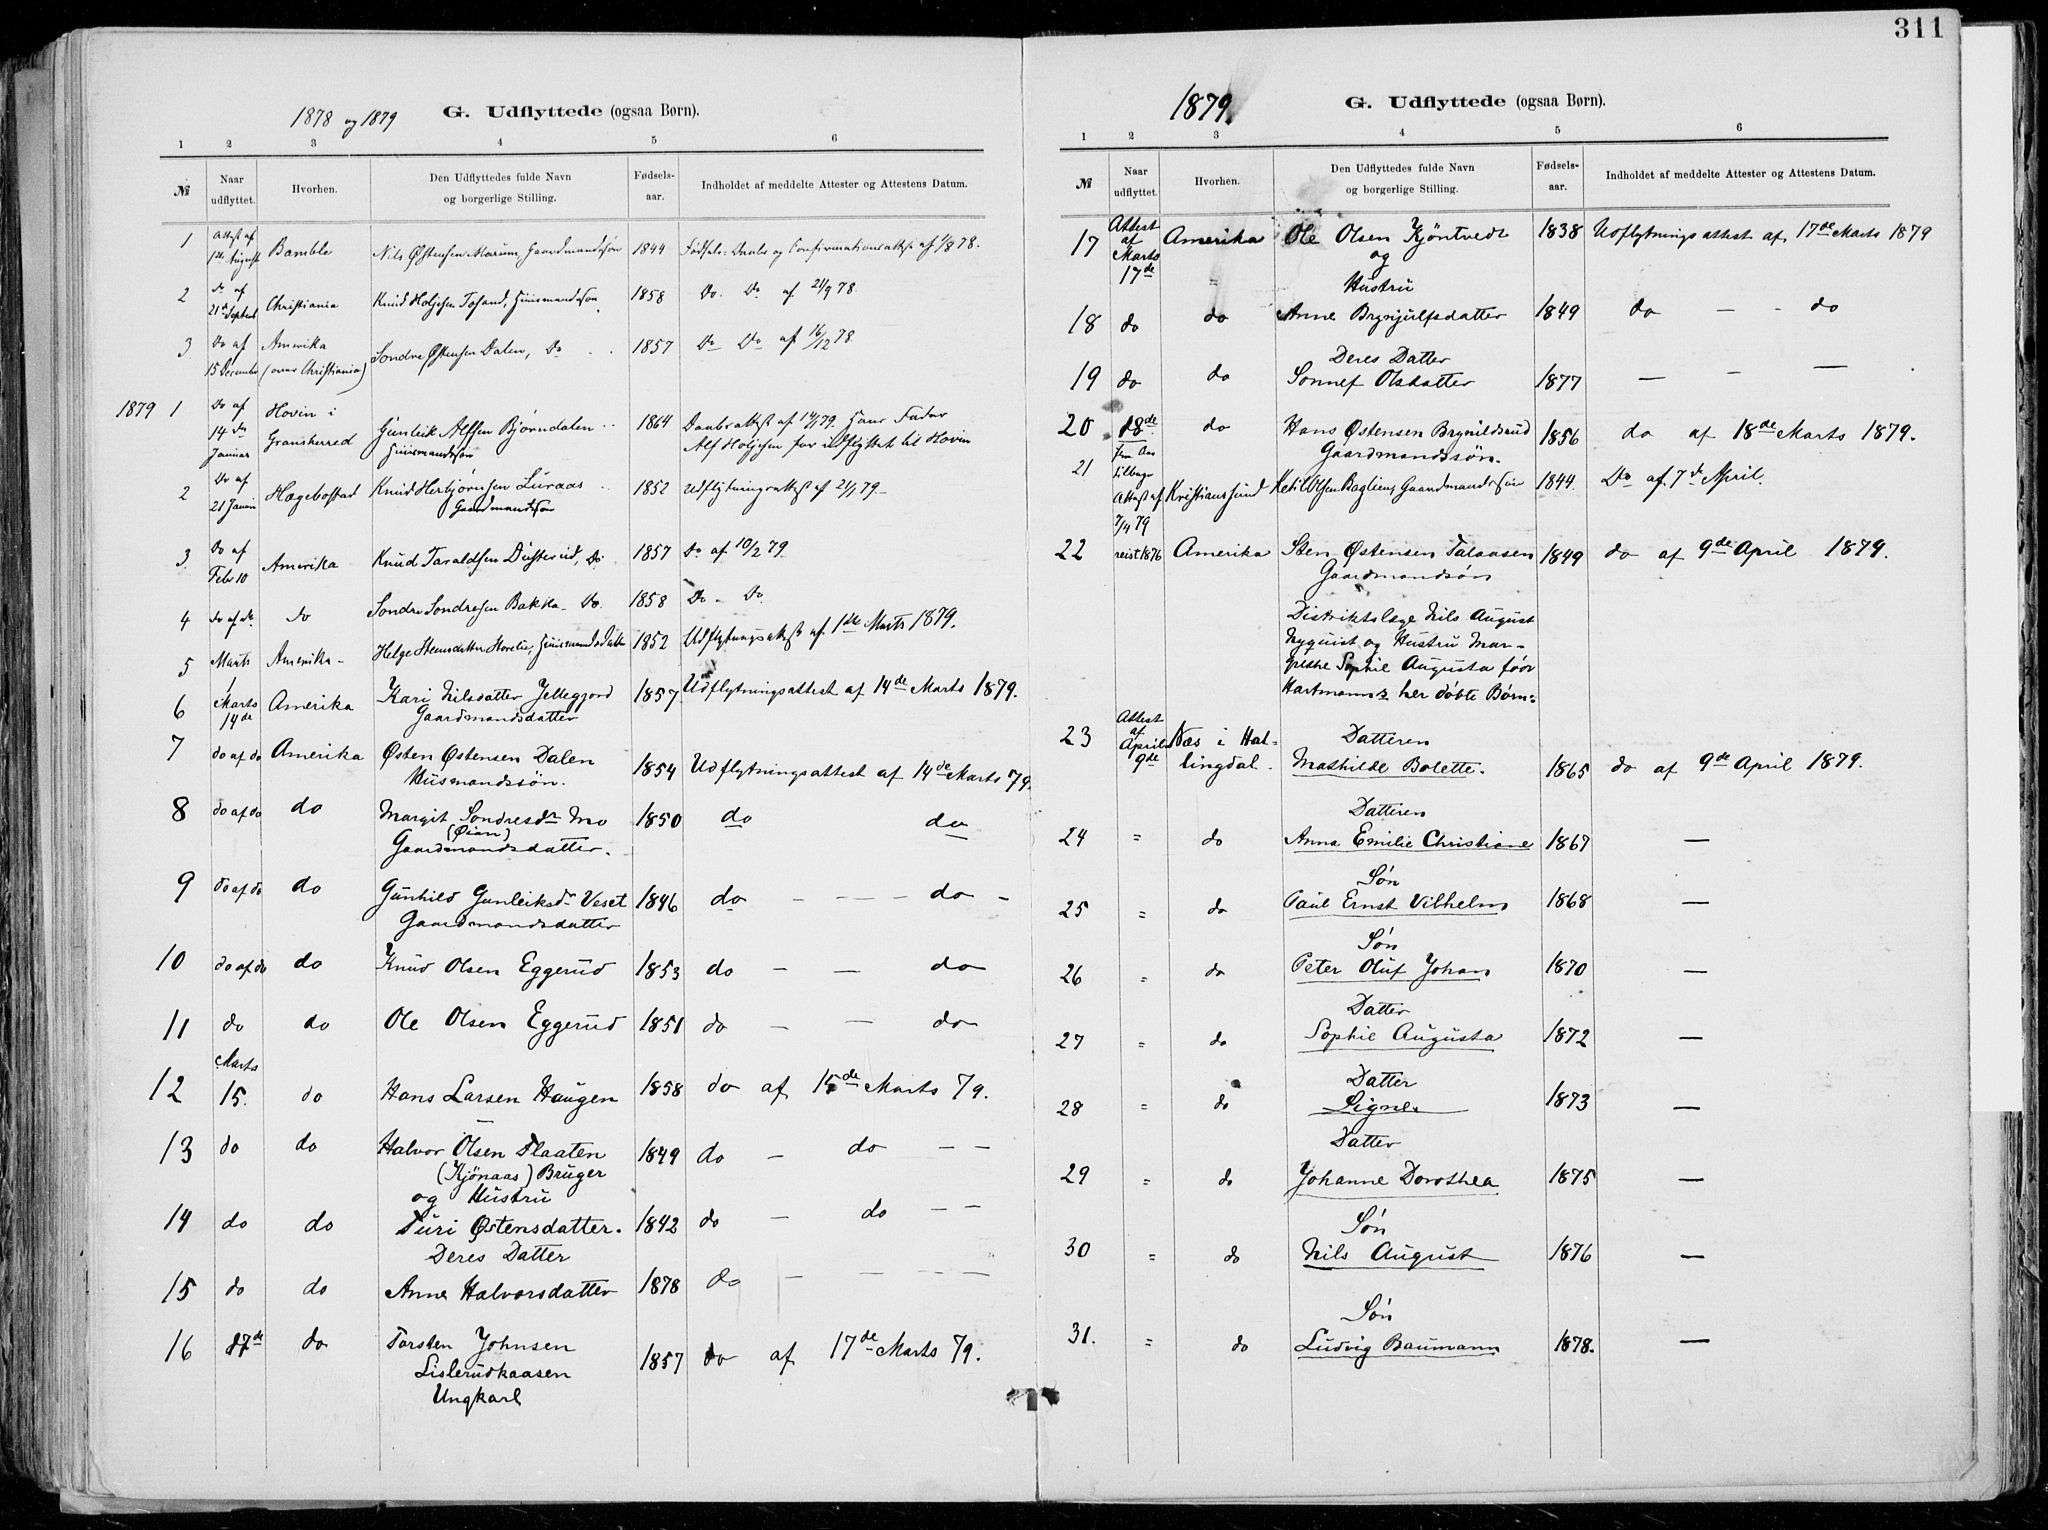 311
1878 og 1879 G. Udflyttede (ogsaa Børn).
1 2 3 4 5 6
№ Naar udflyttet. Hvorhen. Den Udflyttedes fulde Navn og borgerlige Stilling. Fødsels-aar. Indholdet af meddelte Attester og Attestens Datum.
1 Attest af 1ste August Bamble Nils Østensen Marum, Gaardmandssøn 1844 Fødsels- Daabs og Confirmationsattest af 1/8 78.
2 do af 21de Septbr Christiania Knud Holjesen Husmandssøn 1858 Do. Do af 21/9 78.
3 Do af 15 December Amerika (over Christiania) Sondre Østensen Dalen, Do 1857 Do Do af 16/12 78
1879 1 Do af 14de Januar Hovin i Gransherred Gunleik Alfsen Bjørndalen Husmandssøn 1864 Daabsattest af 14/1 79. Hans Fader Alf Holjesen før udflyttet til Hovin
2 Do af 21 Januar Hægebostad Knud Herbjørnsen Luraas Gaardmandssøn 1852 Udflytningsattest af 21/1 79
3 Do af Febr 10 Amerika Knud Taraldsen Dusterud, Do 1857 Do af 10/2 79.
4 Do af do do Sondre Sondresen Bakka Do. 1858 Do - Do
5 Marts 1 Amerika Helge Steensdatter Husmandsdatter 1852 Udflytningsattest af 1ste Marts 1879.
6 Marts 14de Amerika Kari Nilsdatter Jellegjord Gaardmandsdatter 1857. Udflytningsattest af 14de Marts 1879.
7 do af do Amerika Østen Østensen Dalen Husmandssøn. 1854 Udflytningsattest af 14de Marts 79.
8 do af do do Margit Sondresdr Mo (Øian) Gaardmandsdatter. 1850 do do
9 do af do do Gunhild Gunleiksdr Veset Gaardmandsdatter 1846 do - - - - do -
10 do af do do Knud Olsen Eggerud 1853 do - - do
11 do do Ole Olsen Eggerud 1851 do - - do
12 Marts 15. do Hans Larsen Haugen 1858 do af 15de Marts 79.
13 do do Halvor Olsen Flaaten (Kjönaas) Bruger og Hustru 1849 do - do - -
14 do do Turi Østensdatter. Deres Datter 1842 do - do - -
15 do do Anne Halvorsdatter 1878 do - - - -
16 17de do Torsten Johnsen Lislerudkaasen Ungkarl 1857 do af 17de Marts 79.
1879. G. Udflyttede (ogsaa Børn).
1 2 3 4 5 6
№ Naar udflyttet. Hvorhen. Den Udflyttedes fulde Navn og borgerlige Stilling. Fødsels-aar. Indholdet af meddelte Attester og Attestens Datum.
17 Attest af Marts 17de Amerika Ole Olsen Kjöntvedt og Hustru 1838 Udflytningsattest af 17de Marts 1879
18 do do Anne Brynjulfsdatter 1849 do - - do
Deres Datter
19 do do Sonnef Olsdatter 1877 - - -
20 18de do Hans Østensen Brynildsrud Gaardmandssøn. 1856 do af 18de Marts 1879.
21 Attest af 7/4 79 Kristianssund Ketil Olsen Gaardmandssøn 1844. Do af 7de April.
22 reist 1876 Amerika Sten Østensen Talaasen Gaardmandsøn 1849 do af 9de April 1879.
Distriktslæge Nils August
Nyquist og Hustru Mar-
grethe Sophie Augusta født
Hartmanns her döbte Børn:
23 Attest af April 9de Næs i Hal-lingdal. Datteren Mathilde Bolette. 1865 do af 9de April 1879.
24 " do Datteren Anna Emilie Christiane 1867 -
25 " do Søn Paul Ernst Vilhelm 1868 -
26 " do Søn Peter Oluf Johan 1870 -
27 " do Datter Sophie Augusta 1872 -
28 " do Datter Signe. 1873 -
29 " do Datter Johanne Dorothea 1875 -
30 " do Søn Nils August 1876 -
31. " do Søn Ludvig Baumann 1878. -